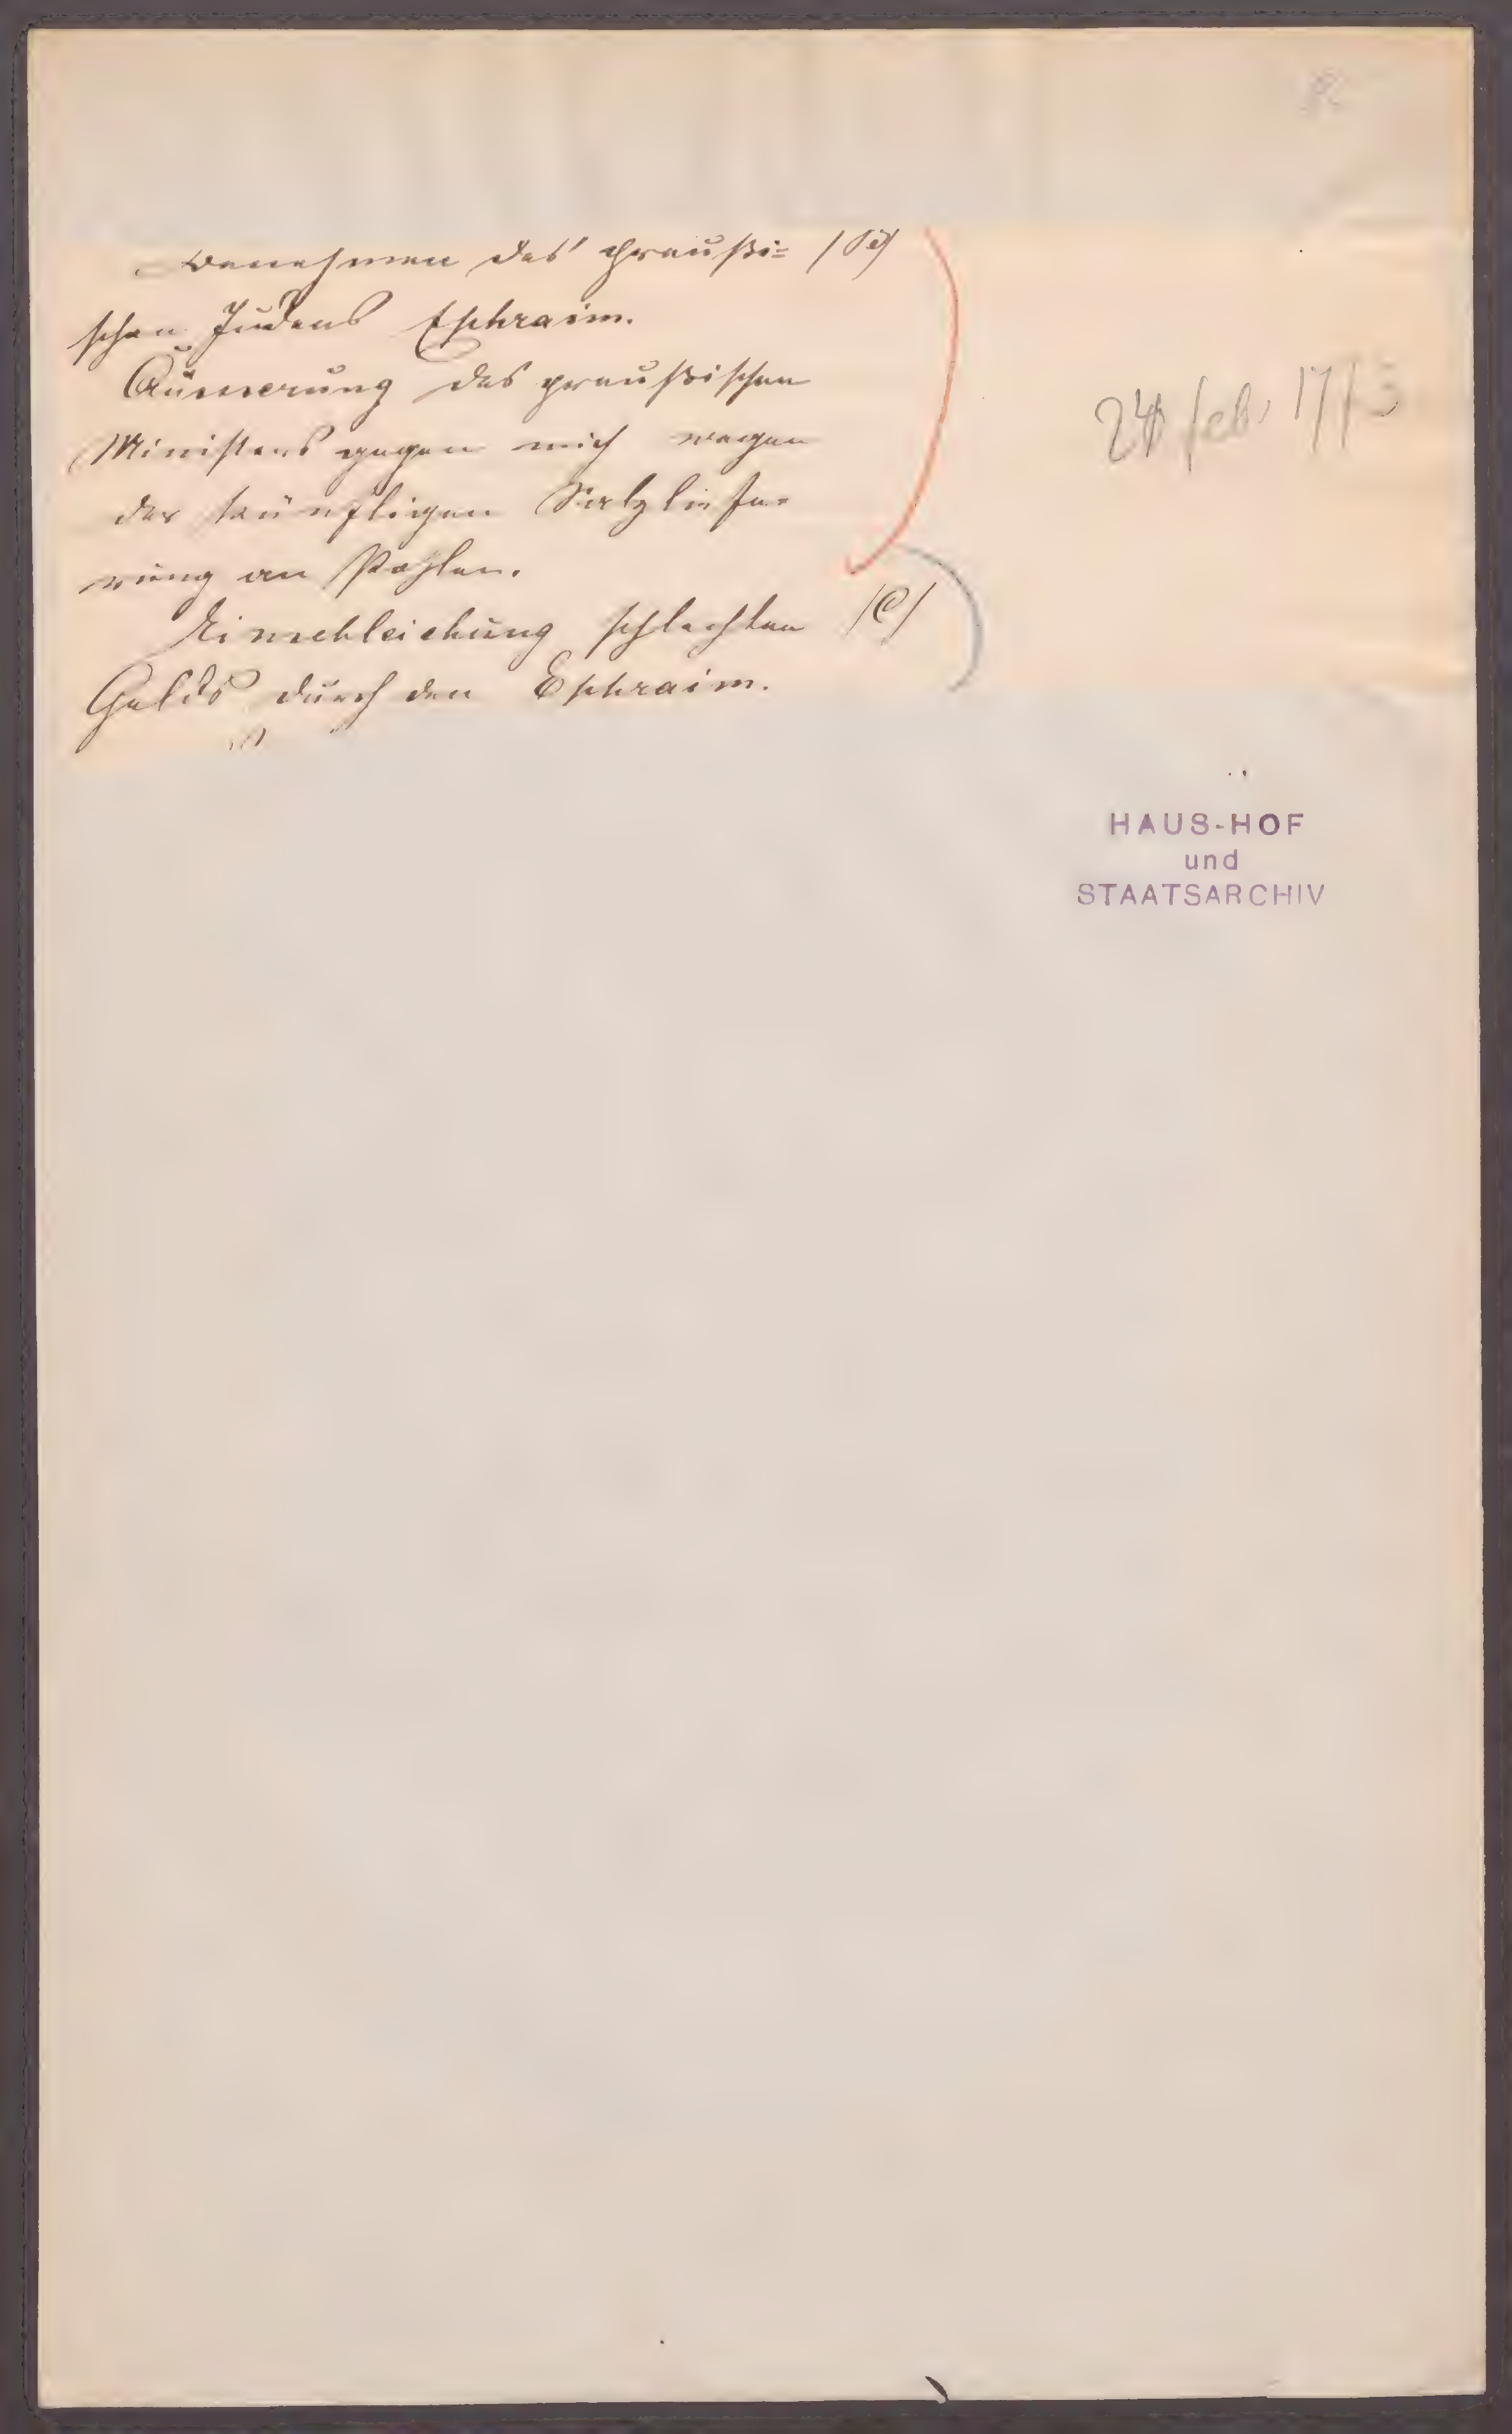 Benehmen des Preußi=
schen Judens Ephraim.
Äusserung des preußischen
Ministers gegen mich wegen
der künftigen Salzliefe=
rung an Pohlen.
Einschleichung schlechten /C/
Gelds durch den Ephraim.
24 feb. 1773
HAUS-HOF
und
STAATSARCHIV